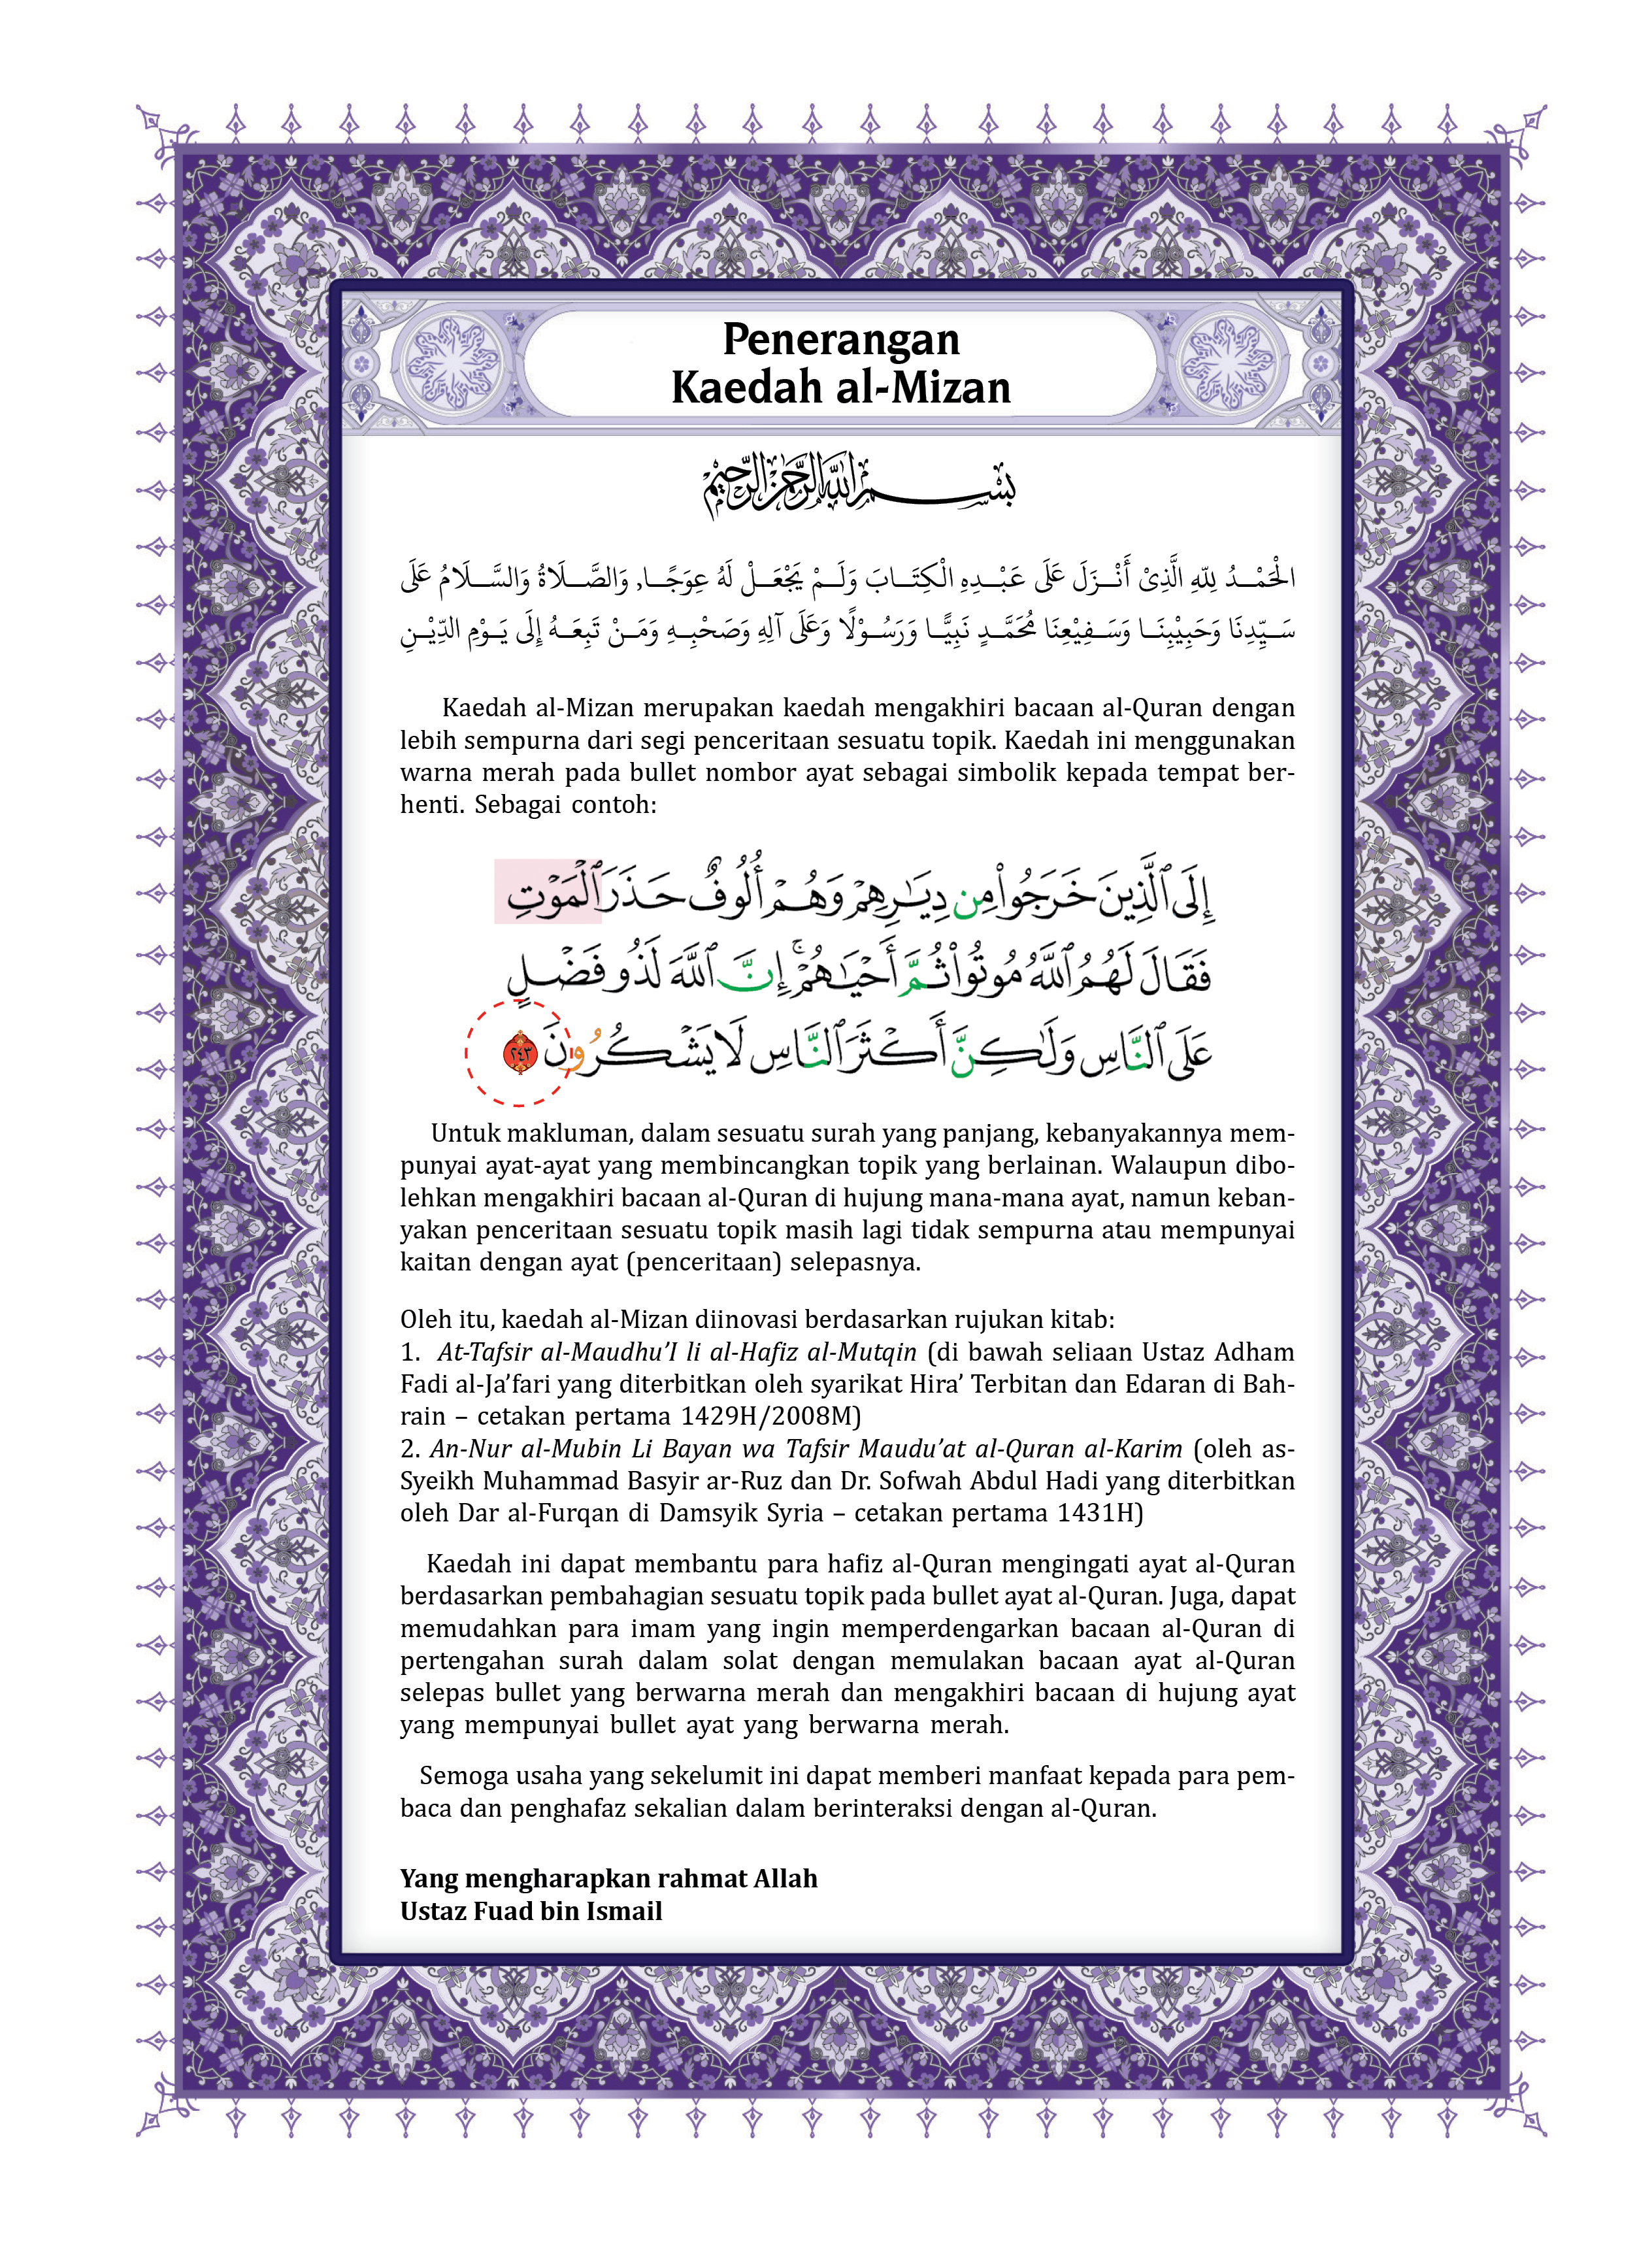 Penerangan
Kaedah al-Mizan
بِسْمِ اللَّهِ الرَّحْمَٰنِ الرَّحِيمِ
الْحَمْدُ لِلّٰهِ الَّذِىْ أَنْزَلَ عَلَى عَبْدِهِ الْكِتَابَ وَلَمْ يَجْعَلْ لَهُ عِوَجًا, وَالصَّلَاةُ وَالسَّلَامُ عَلَى
سَيِّدِنَا وَحَبِيْبِنَا وَسَفِيْعِنَا مُحَمَّدٍ نَبِيًّا وَرَسُوْلًا وَعَلَى آلِهِ وَصَحْبِهِ وَمَنْ تَبِعَهُ إِلَى يَوْمِ الدِّيْنِ
Kaedah al-Mizan merupakan kaedah mengakhiri bacaan al-Quran dengan
lebih sempurna dari segi penceritaan sesuatu topik. Kaedah ini menggunakan
warna merah pada bullet nombor ayat sebagai simbolik kepada tempat ber-
henti. Sebagai contoh:
إِلَى ٱلَّذِينَ خَرَجُوا۟ مِن دِيَٰرِهِمْ وَهُمْ أُلُوفٌ حَذَرَ ٱلْمَوْتِ
فَقَالَ لَهُمُ ٱللَّهُ مُوتُوا۟ ثُمَّ أَحْيَٰهُمْ ۚ إِنَّ ٱللَّهَ لَذُو فَضْلٍ
عَلَى ٱلنَّاسِ وَلَٰكِنَّ أَكْثَرَ ٱلنَّاسِ لَا يَشْكُرُونَ ٢٤٣
Untuk makluman, dalam sesuatu surah yang panjang, kebanyakannya mem-
punyai ayat-ayat yang membincangkan topik yang berlainan. Walaupun dibo-
lehkan mengakhiri bacaan al-Quran di hujung mana-mana ayat, namun keban-
yakan penceritaan sesuatu topik masih lagi tidak sempurna atau mempunyai
kaitan dengan ayat (penceritaan) selepasnya.
Oleh itu, kaedah al-Mizan diinovasi berdasarkan rujukan kitab:
1. At-Tafsir al-Maudhu’I li al-Hafiz al-Mutqin (di bawah seliaan Ustaz Adham
Fadi al-Ja’fari yang diterbitkan oleh syarikat Hira’ Terbitan dan Edaran di Bah-
rain – cetakan pertama 1429H/2008M)
2. An-Nur al-Mubin Li Bayan wa Tafsir Maudu’at al-Quran al-Karim (oleh as-
Syeikh Muhammad Basyir ar-Ruz dan Dr. Sofwah Abdul Hadi yang diterbitkan
oleh Dar al-Furqan di Damsyik Syria – cetakan pertama 1431H)
Kaedah ini dapat membantu para hafiz al-Quran mengingati ayat al-Quran
berdasarkan pembahagian sesuatu topik pada bullet ayat al-Quran. Juga, dapat
memudahkan para imam yang ingin memperdengarkan bacaan al-Quran di
pertengahan surah dalam solat dengan memulakan bacaan ayat al-Quran
selepas bullet yang berwarna merah dan mengakhiri bacaan di hujung ayat
yang mempunyai bullet ayat yang berwarna merah.
Semoga usaha yang sekelumit ini dapat memberi manfaat kepada para pem-
baca dan penghafaz sekalian dalam berinteraksi dengan al-Quran.
Yang mengharapkan rahmat Allah
Ustaz Fuad bin Ismail